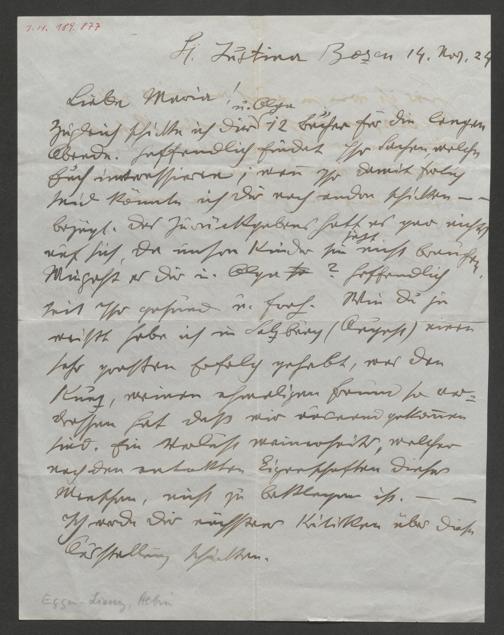 I.N. 189.877
St. Justina Bozen 14. Nov. 24
Liebe Maria!
u. Olga
Zugleich schicke ich dir 12 Bücher für die langen
Abende. Hoffendlich findet Ihr Sachen welche
Euch interessieren; wenn Ihr damit fertig
seid könnte ich dir noch andre schicken — —
bezügl. des Zurückgebens hat es gar nichts
auf sich, da unsere Kinder sie jetzt nicht brauchen.
Wie geht es dir u. Olga? Hoffendlich
seit Ihr gesund u. froh. Wie du ja
weißt habe ich in Salzburg (August) einen
sehr großen Erfolg gehabt, was den
Kunz, meinen ehemaligen Freund so ver-
drossen hat daß wir auseinandgekommen
sind. Ein Verlust meinerseits, welcher
nach den entdeckten Eigenschaften dieses
Menschen, nicht zu beklagen ist. — —
Ich werde dir nächstens Kritiken über diese
Ausstellung schicken.
Egger-Lienz, Albin